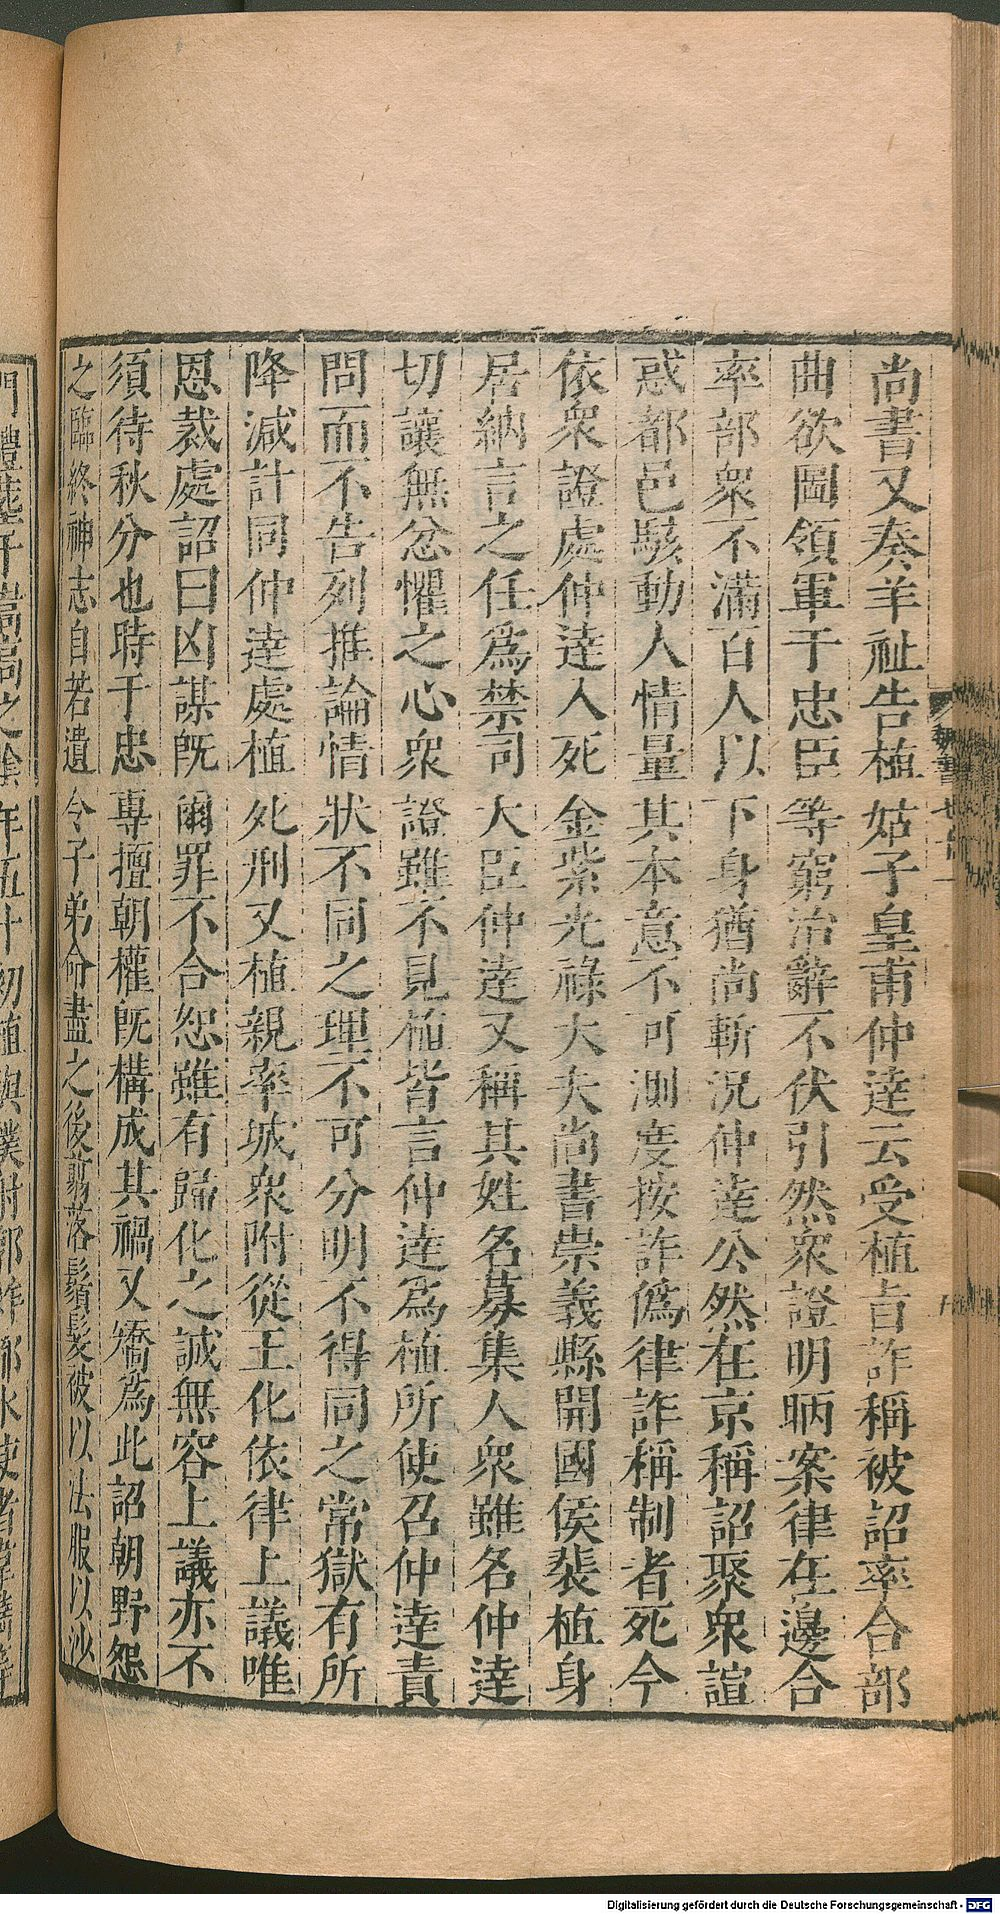 尚書又奏羊祉告植姑子皇甫仲達云受植旨詐稱被詔率合部
曲欲圖領軍于忠臣等窮治辭不伏引然衆證明昞案律在邊合
率部衆不滿百人以下身猶尚斬況仲達公然在京稱詔聚衆諠
惑都邑駭動人情量其本意不可測度按詐僞律詐稱制者死今
依衆證處仲達人死金紫光祿大夫尚書崇義縣開國侯裴植身
居納言之任爲禁司大臣仲達又稱其姓名募集人衆雖名仲達
切讓無忿懼之心衆證雖不見植皆言仲達爲植所使召仲達責
問而不告列推論情狀不同之理不可分明不得同之常獄有所
降減計同仲達處植死刑又植親率城衆附從王化依律上議唯
恩裁處詔曰凶謀旣爾罪不合恕雖有歸化之誠無容上議亦不
須待秋分也時于忠專擅朝權旣構成其禍又矯爲此詔朝野怨
之臨終神志自若遺令子弟命盡之後翦落鬚髮被以法服以沙
門禮葬于嵩高之陰年五十初植與僕射郭祚都水使者韋
Digitalisierung gefördert durch die Deutsche Forschungsgemeinschaft - DFG